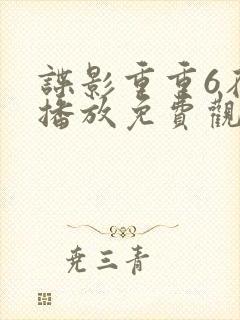 諜影重重6在
播放免費觀
尭三青